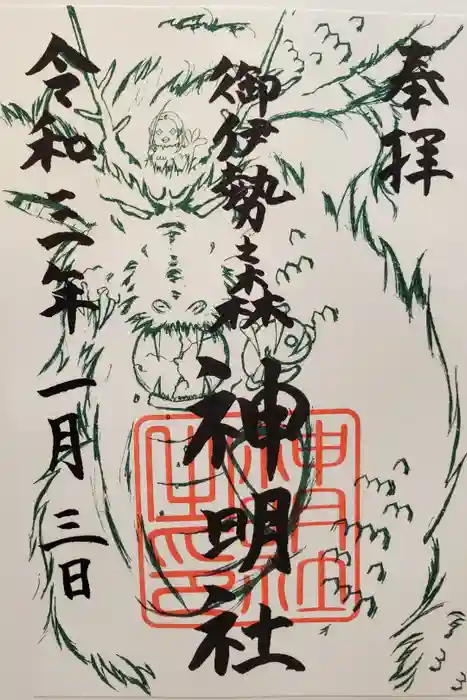 奉拝
御伊勢森 神明社
令和三年一月三日